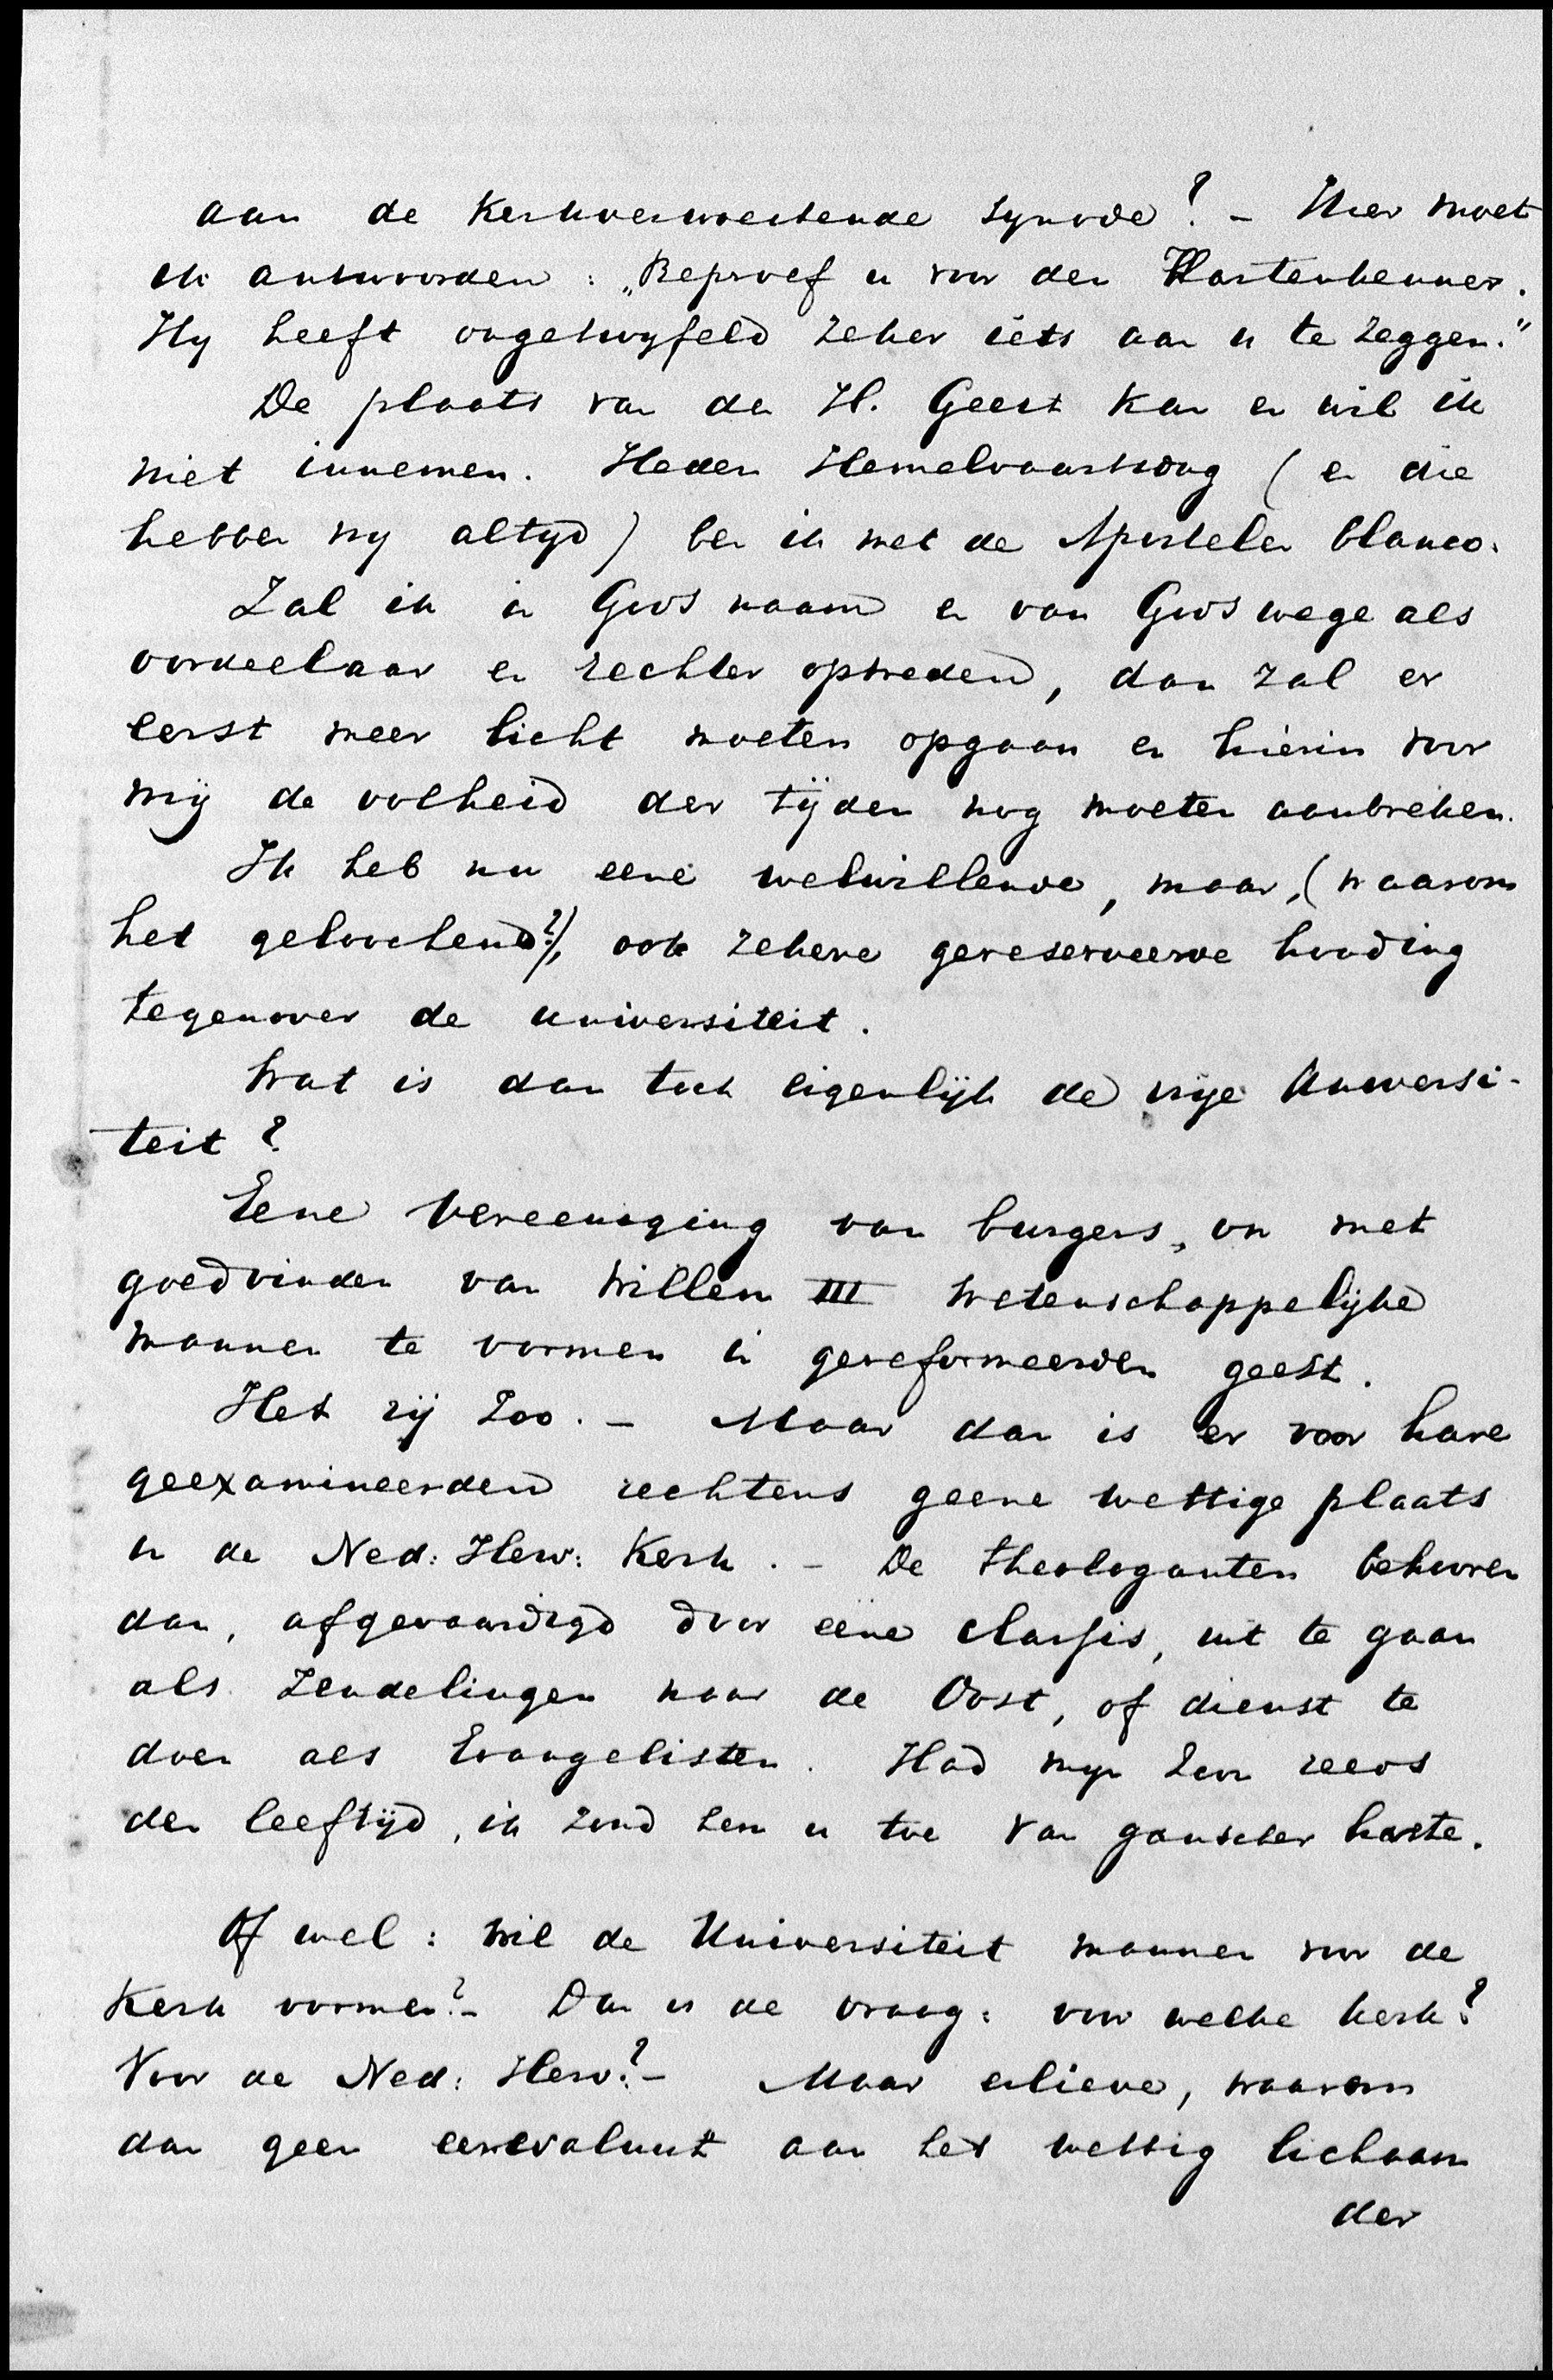 aan de kerkverwoestende synode? - Hier moet
ik antwoorden: „Beproef u voor den Hartenkenner.
Hy heeft ongetwyfeld zeker iets aan u te zeggen."
De plaats van den H. Geest kan en wil ik
niet innemen. Heden Hemelvaartsdag (en die
hebben wy altyd) ben ik met de Apostelen blanco.
Zal ik in Gods naam en van Gods wege als
oordeelaar en rechter optreden, dan zal er
eerst meer licht moeten opgaan en hierin voor
mij de volheid der tijden nog moeten aanbreken.
Ik heb nu eene welwillende, maar, (waarom
het geloochend?), ook zekere gereserveerde houding
tegenover de universiteit.
Wat is dan toch eigenlijk de vrije Universi-
teit?
Eene Vereeniging van burgers, om met
goedvinden van Willem III wetenschappelijke
mannen te vormen in gereformeerden geest.
Het zij zoo. - Maar dan is er voor hare
geexamineerden rechtens geene wettige plaats
in de Ned: Herv: Kerk. - De theologanten behooren
dan, afgevaardigd door eene classis, uit te gaan
als zendelingen naar de Oost, of dienst te
doen als Evangelisten. Had myn zoon reeds
den leeftijd, ik zond hem u toe van ganscher harte.
Of wel: wil de Universiteit mannen voor de
Kerk vormen? - Dan is de vraag: voor welke kerk?
Voor de Ned: Herv:? - Maar eilieve, waarom
dan geen eerevaluut aan het wettig lichaam
der